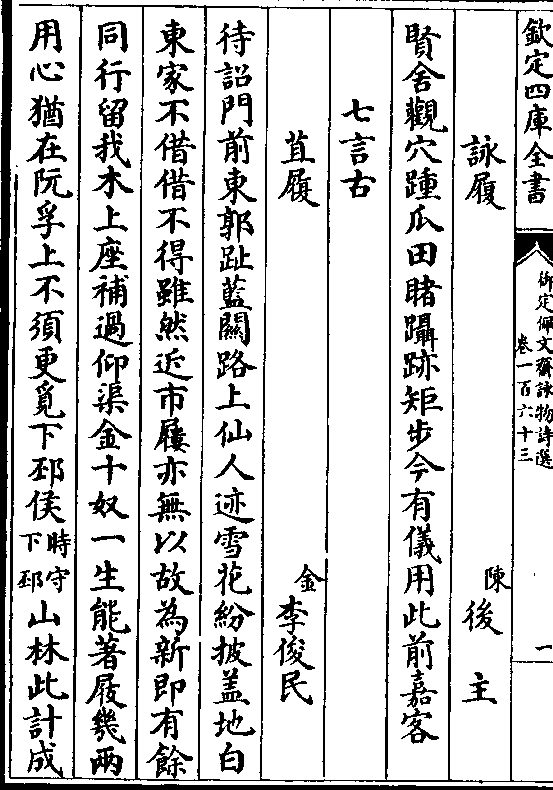 欽定四庫全書
御定佩文齋詠物詩選
卷一百六十三
一
詠履
陳後主
賢舍觀穴踵瓜田睹躡跡矩步今有儀用此前嘉客
七言古
苴履
金李俊民
待詔門前東郭趾藍關路上仙人迹雪花紛披蓋地白
東家不借借不得雖然近市屨亦無以故為新即有餘
同行留我木上座補過仰渠金十奴一生能著屐幾兩
用心猶在阮孚上不須更覓下邳侯時守下邳山林此計成